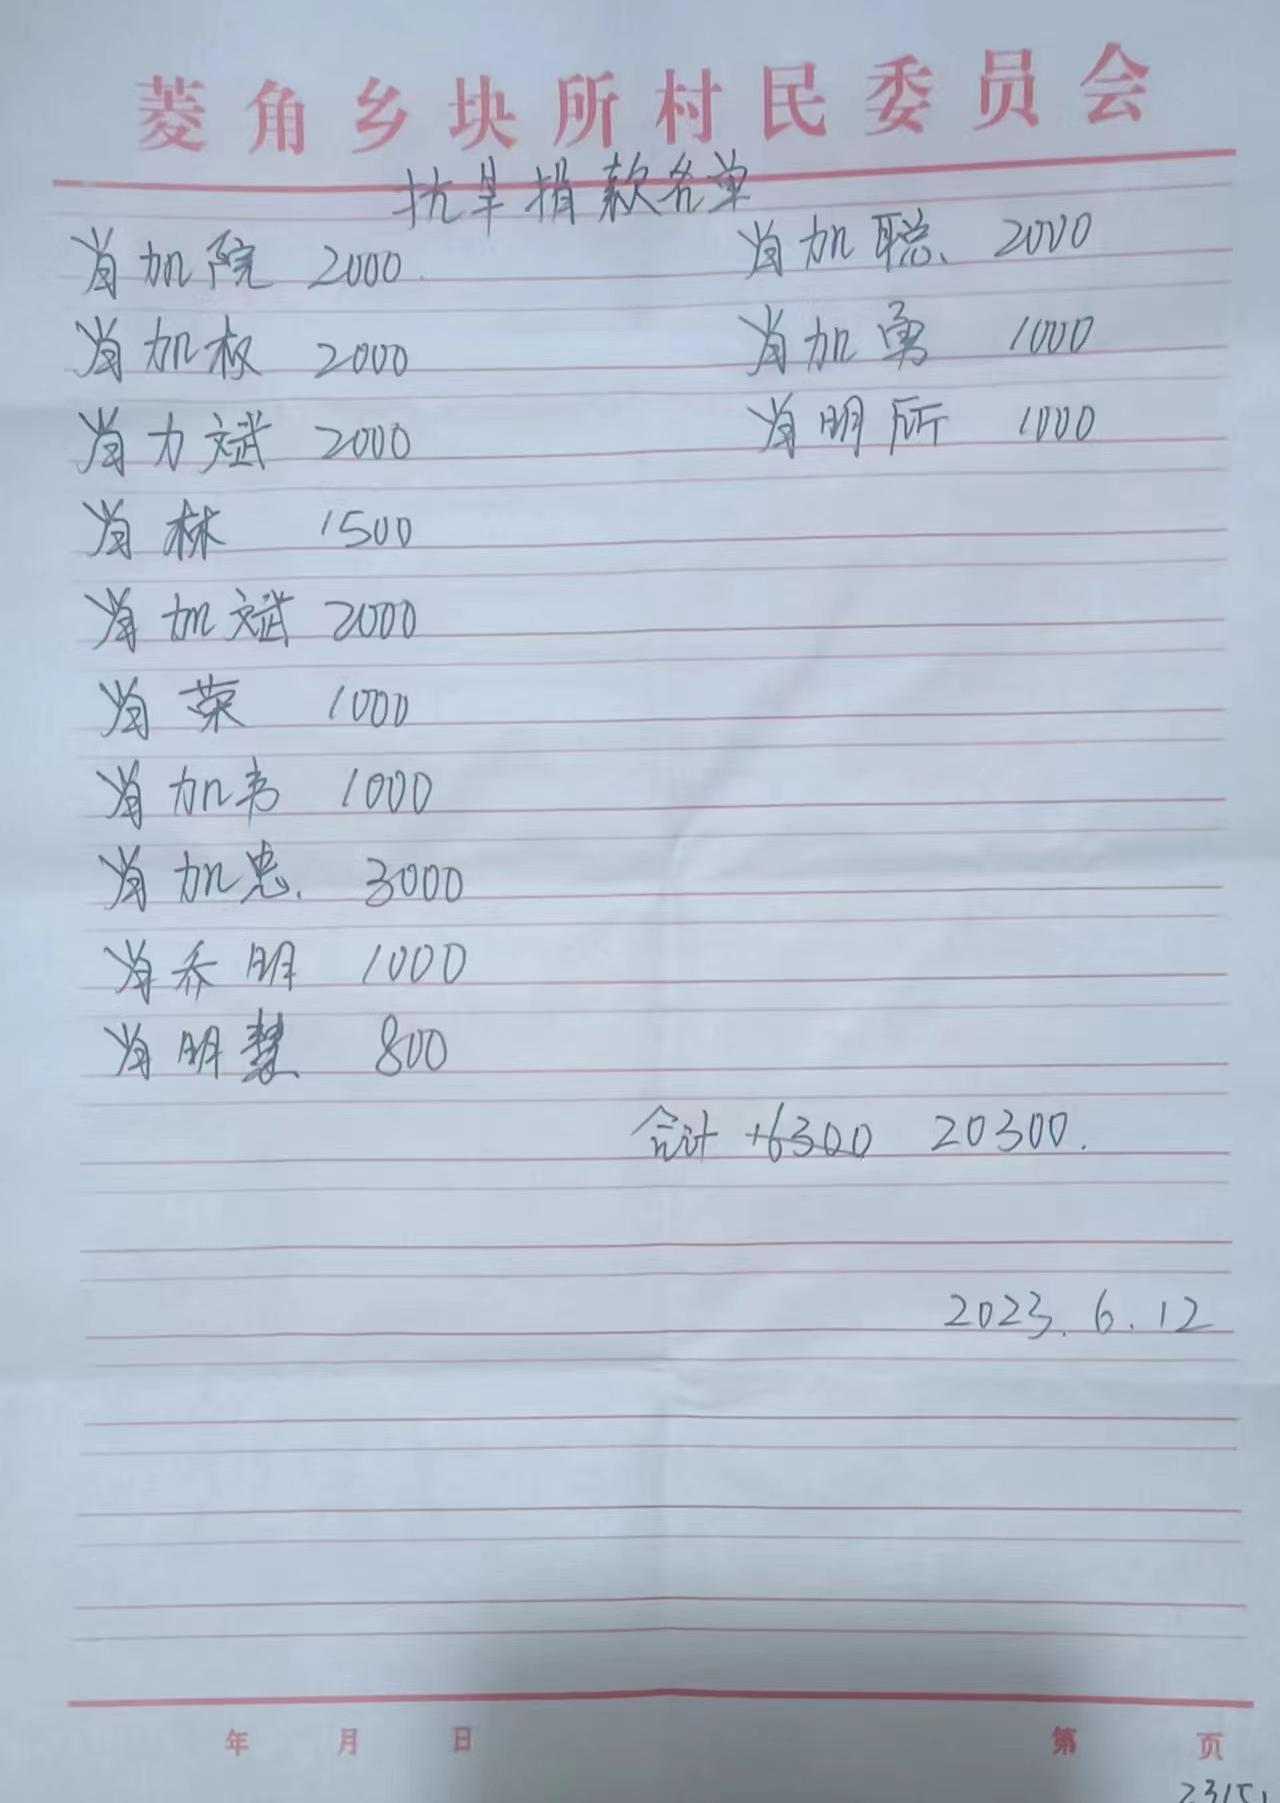 菱角乡块所村民委员会
抗旱捐款名单
肖加院 2000 肖加聪 2000
肖加权 2000 肖加勇 1000
肖力斌 2000 肖明所 1000
肖林 1500
肖加斌 2000
肖荣 1000
肖加韦 1000
肖加忠 3000
肖乔明 1000
肖明慧 800
合计 16300 20300.
2023.6.12
年 月 日 第 页